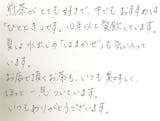 煎茶がとても好きで、中でもおすすめは
「ひととき」です。10年以上愛飲しています。
夏は水出しの「はまかぜ」も気に入って
います。
お店で頂くお茶も、いつも美味しく
ほっと一息ついています。
いつもありがとうございます。